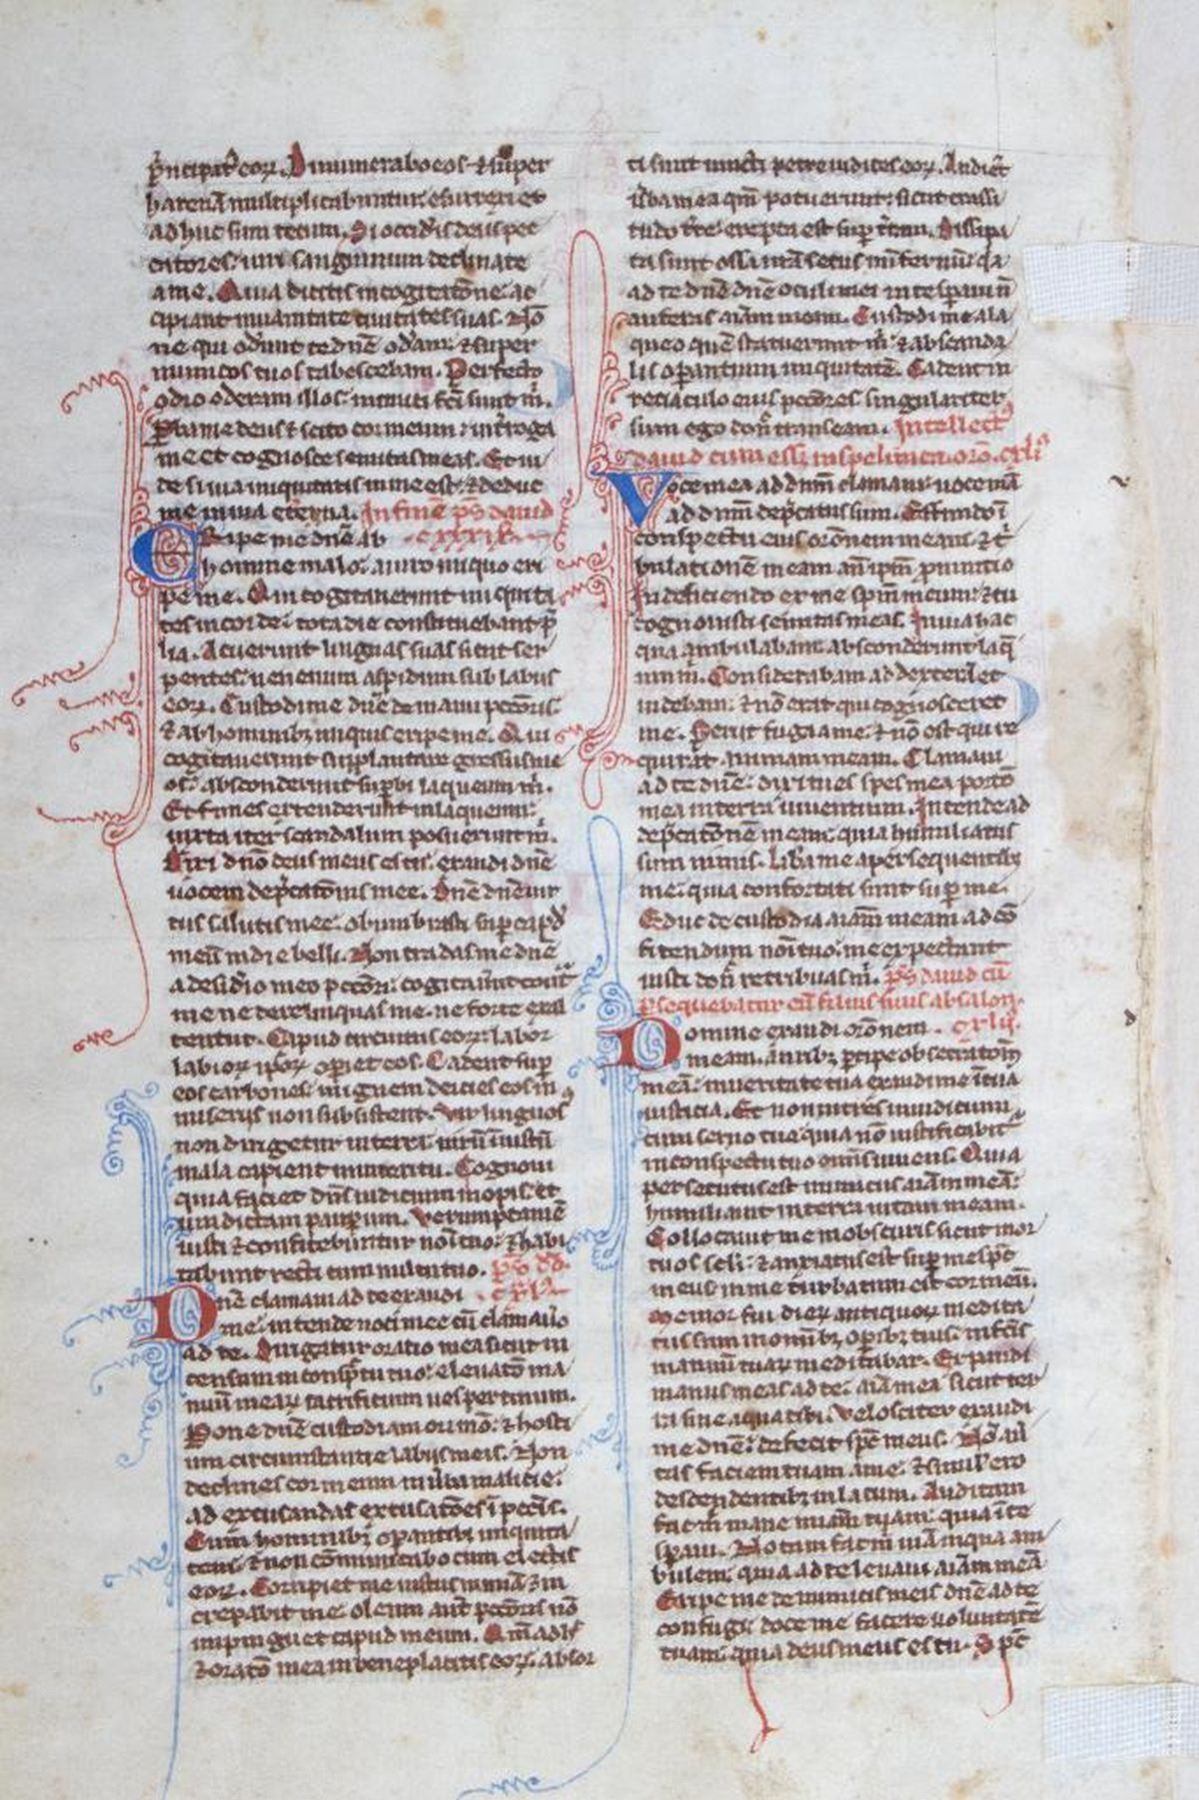 principat᷒ eoꝝ. Dinumerabo eos ⁊ super
harenā multiplicabuntur. exsurrexi et
adhuc sum tecum. Si occid᷒is deus pec
catores: uiri sanguinum declinate
a me. Quia dicitis in cogitatōne: ac
cipiant in uanitate ciuitates suas. Nō
ne qui oderunt te dn̄e oderam: ⁊ super
inimicos tuos tabescebam. Perfecto
odio oderam illos: inimici fc̄i sunt m̄.
Proba me deus ⁊ scito cor meum: int̄roga
me et cognosce semitas meas. Et ui
de si uia iniquitatis in me est: ⁊ deduc
me in uia eterna. In finē ps̄ dauid
Eripe me dn̄e ab cxxxix
homine malo: a uiro iniquo eri
pe me. Qui cogitauerunt iniquita
tes in corde: tota die constituebant p̄
lia. Acuerunt linguas suas sicut ser
pentes: uenenum aspidum sub labiis
eoꝝ. Custodi me dn̄e de manu pctōris
⁊ ab hominibꝫ iniquis eripe me. Qui
cogitauerunt supplantare gressus me
os: absconderunt suꝑbi laqueum m̄.
Et funes extenderunt in laqueum:
iuxta iter scandalum posuerunt m̄.
Dixi dn̄o deus meus es tu: exaudi dn̄e
uocem dep̄catōnis mee. Dn̄e dn̄e uir
tus salutis mee: obumbrasti suꝑ capd̓
meū in die belli. Non tradas me dn̄e
a desid̓io meo pctōri: cogitau̓nt cont̄
me ne derelinquas me. ne forte exal
tentur. Capud circuitus eoꝝ: labor
labioꝝ ipoꝝ opiet eos. Cadent suꝑ
eos carbones: in ignem deicies eos in
miseriis non subsistent. Vir linguos᷒
non dirigetur in terra: uirū iniustū
mala capient in interitu. Cognoui
quia faciet dn̄s iudicium inopis: et
uindictam pauꝑum. Verumptamē
iusti ⁊ confitebuntur nōi tuo: ⁊ habi
tabunt recti cum uultu tuo. ps̄ dd̄
Dn̄e clamaui ad te exaudi cxl
me: intende uoci mee cū clamau̓o
ad te. Dirigatur oratio mea sicut in
censum in consp̄tu tuo: eleuatō ma
nuū meaꝝ sacrificium uespertinum.
Pone dn̄e custodiam ori mō: ⁊ hosti
um circumstantie labiis meis. Non
declines cor meum in ūba malicie:
ad excusandas excusatōes ī pecc̄is.
Cum hominibꝫ oꝑantibꝫ iniquita
tem: ⁊ non cōmunicabo cum electis
eoꝝ. Corripiet me iustus in mīa ⁊ in
crepabit me: oleum aūt pctōris nō
impinguet capud meum. Qm̄ adh̄
⁊ oratō mea in beneplacitis eoꝝ: absor
ti sunt iuncti petre iudices eoꝝ. Audiēt
ūba mea qm̄ potuerunt: sicut crassi
tudo tr̄e erepta est suꝑ tr̄am. Dissipa
ta sunt ossa nr̄a secus infernū: q̄a
ad te dn̄e dn̄e oculi mei in te spaui n̄
auferas aīam meam. Custodi me a la
queo quē statuerunt m̄: ⁊ ab scanda
lis oꝑantium iniquitatē. Cadent in
retiaculo eius pctōres: singulariter
sum ego donc̄ transeam. Intellect᷒
dauid cum esset in spelunca. orō. cxli
Voce mea ad dn̄m clamaui: uoce mā
ad dn̄m dep̄catus sum. Effundo ī
conspectu eius orōnem meam: ⁊ t̄
bulationē meam an̄ ipm̄ pnuntio
In deficiendo ex me spm̄ meum: ⁊ tu
cognouisti semitas meas. In uia hac
qua ambulabam: absconderunt laq̄
um m̄. Considerabam ad dexteram et
uidebam: ⁊ nō erat qui cognosceret
me. Periit fuga a me: ⁊ nō est qui re
quirat animam meam. Clamaui
ad te dn̄e: dixi tu es spes mea portō
mea in terra uiuentium. Intende ad
dep̄catōnē meam: quia humiliatus
sum nimis. Libā me a persequentibꝫ
me: quia confortati sunt suꝑ me.
Educ de custodia aīam meam ad cō
fitendum nōi tuo: me expectant
iusti donc̄ retribuas m̄. ps̄ dauid cū
ꝑsequebatur eū filius suus absalon.
Domine exaudi orōnem cxlij
meam: auribꝫ ꝑcipe obsecratōm̄
meā: in ueritate tua exaudi me ī tua
iusticia. Et non intres in iudicium
cum seruo tuo: quia nō iustificabit᷒
in conspectu tuo omīs uiuens. Quia
persecutus est inimicus aīam meā:
humiliauit in terra uitam meam.
Collocauit me in obscuris sicut mor
tuos scl̄i: ⁊ anxiatus est suꝑ me spc̄
meus in me turbatum est cor meū.
Memor fui dieꝝ antiquoꝝ medita
tus sum in omībꝫ oꝑibꝫ tuis: in fc̄is
manuū tuaꝝ meditabar. Expandi
manus meas ad te: aīa mea sicut ter
ra sine aqua tibi. Velociter exaudi
me dn̄e: defecit spc̄ meus. Nō au̓
tas faciem tuam a me: ⁊ simil̓ ero
descendentibꝫ in lacum. Auditam
fac m̄ mane mīam tuam: quia ī te
spaui. Notam fac m̄ uiā in qua am
bulem: quia ad te leuaui aīam meā
Eripe me de inimicis meis dn̄e ad te
confugi: doce me facere uoluntatē
tuam: quia deus meus es tu. Spc̄